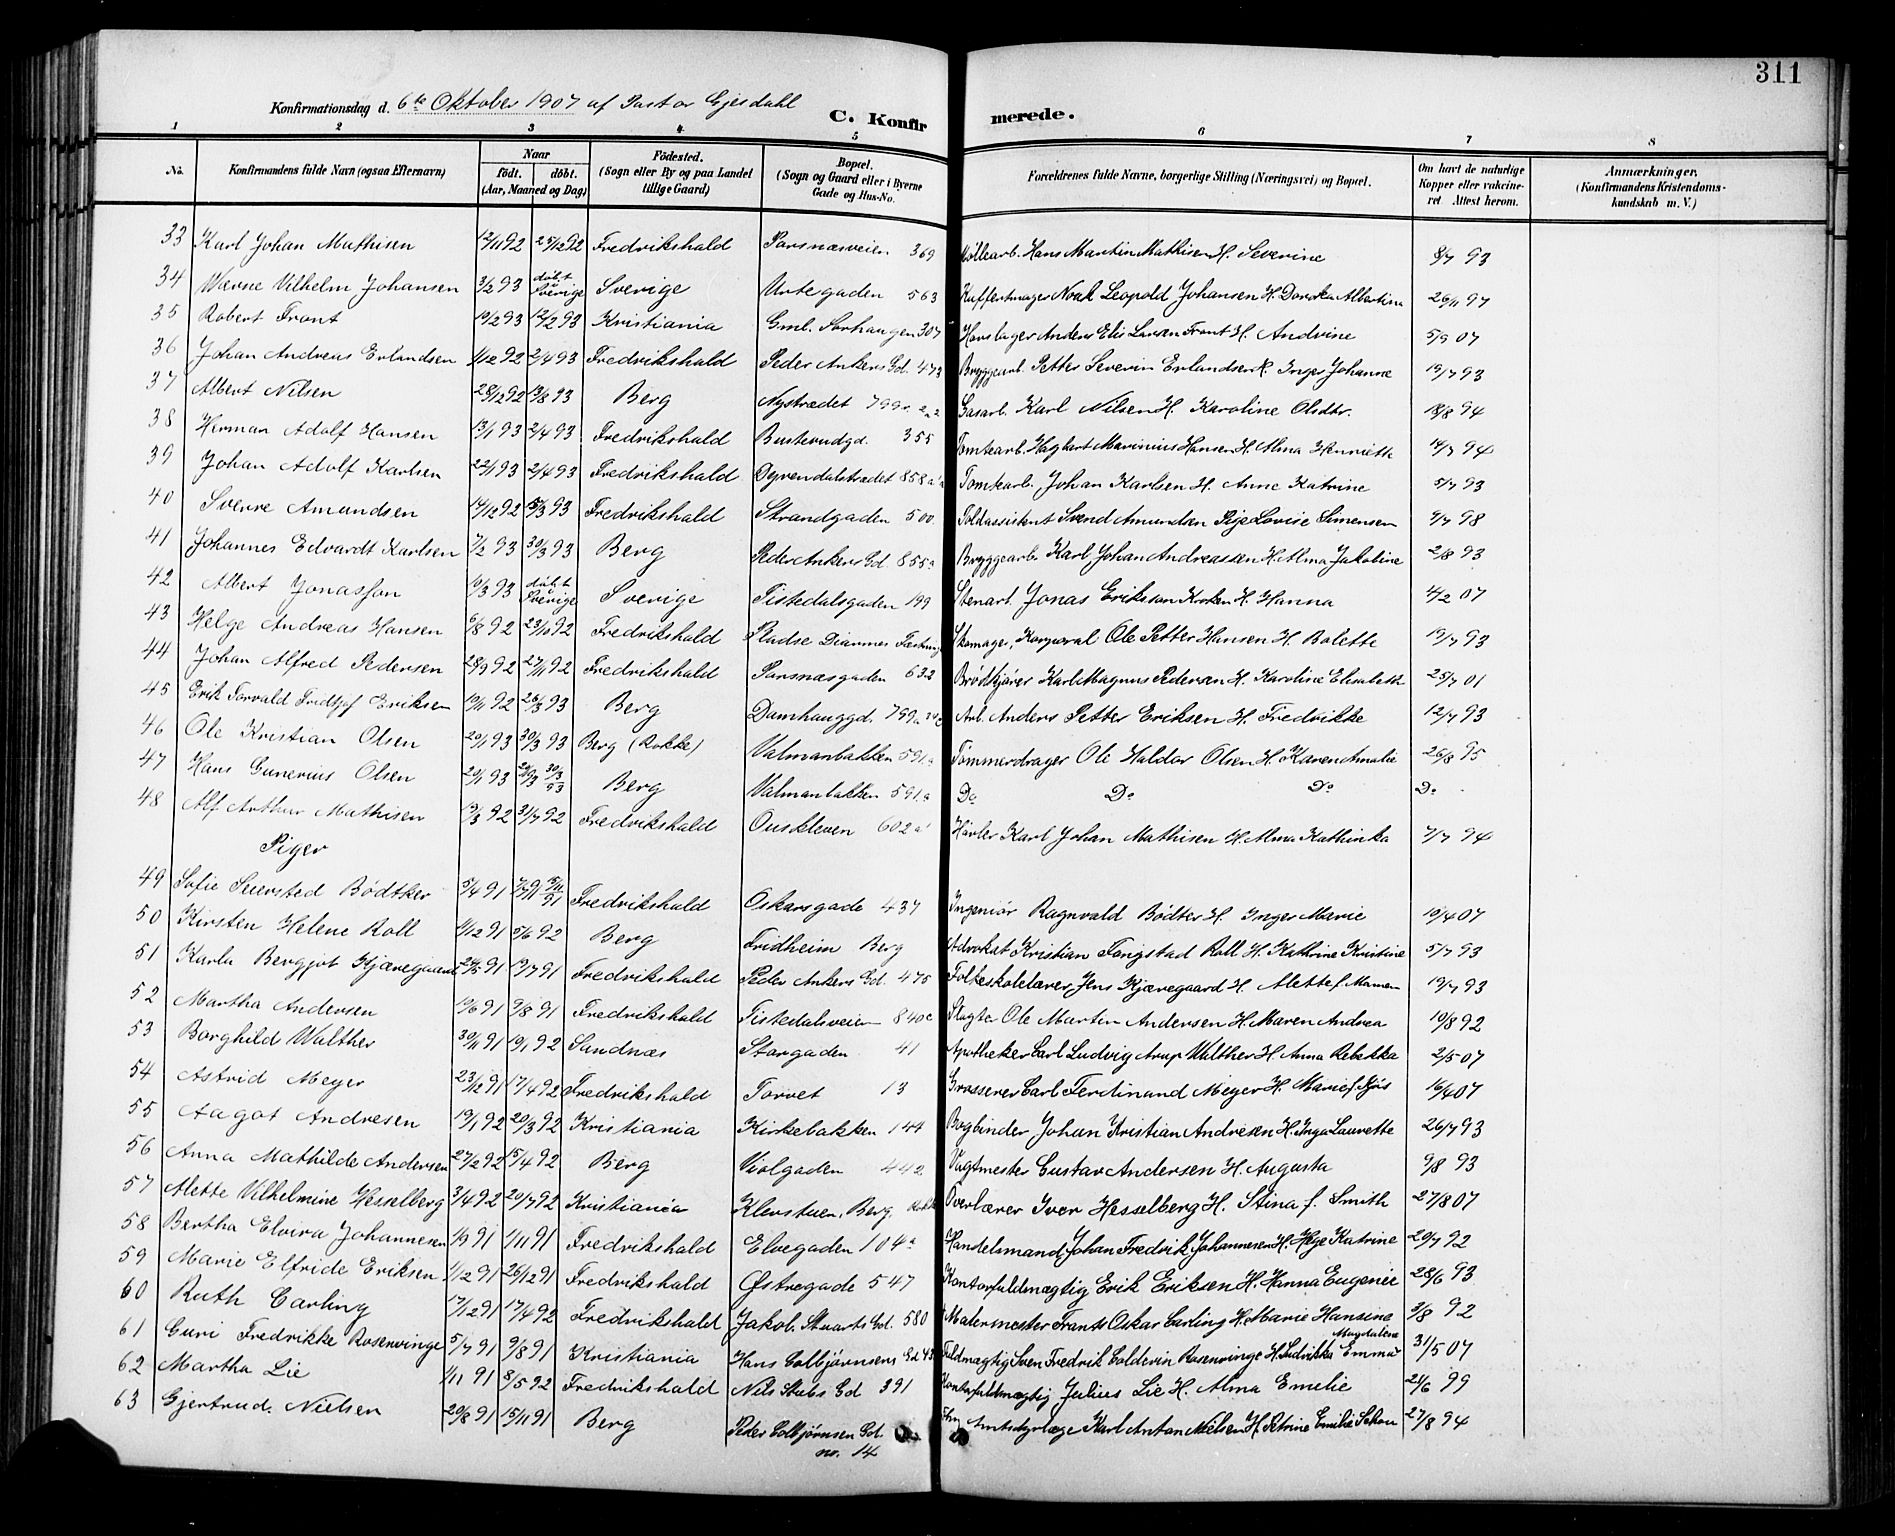 311
Konfirmationsdag d. 6te Oktober 1907 af Pastor Gjesdahl
C. Konfirmerede.
1 2 3 4 5 6 7 8
No. Konfirmandens fulde Navn (ogsaa Efternavn) Naar født. døbt. (Aar, Maaned og Dag) Födested. (Sogn eller By og paa Landet tillige Gaard) Bopæl. (Sogn og Gaard eller i Byerne Gade og Hus-No. Forældrenes fulde Navne, borgerlige Stilling (Næringsvei) og Bopæl. Om havt de naturlige Kopper eller vakcineret. Attest herom. Anmærkninger. (Konfirmandens Kristendomskundskab m. V.)
33 Karl Johan Mathisen 12/11 92 25/12 92 Fredrikshald 369 Møllearb. Hans Martin Mathisen H. Severine 8/7 93
34 Werne Vilhelm Johansen 3/2 93 døbt i Sverige Sverige Urtegaden 563 Kuffertmager Noak Leopold Johansen H. Albertina 26/11 97
35 Robert Front 19/2 93 12/2 93 Kristiania Gml. 307 Hovslager Anders Elis Larsen Front H. Andrine 5/9 07
36 Johan Andreas Erlandsen 1/12 92 2/4 93 Fredrikshald Peder Ankers Gd. 473 Bryggearb. Petter Severin Erlandsen H. Inger Johanne 19/7 93
37 Albert Nilsen 28/12 92 13/8 93 Berg Nystrædet 799 Gasarb. Karl Nilsen H. Karoline Olsdtr. 18/8 94
38 Herman Adolf Hansen 13/1 93 2/4 93 Fredrikshald 355 Tomtearb. Hagbart Marinius Hansen H. Alma Henriette 14/7 94
39 Johan Adolf Karlsen 22/1 93 2/4 93 Fredrikshald Dyrendalstrædet 858 Tomtearb. Johan Karlsen H. Anne Katrine 5/7 93
40 Sverre Amundsen 14/12 92 5/3 93 Fredrikshald Strandgaden 500 Toldassistent Svend Amundsen Pige Lovise Simensen 9/7 98
41 Johannes Edvardt Karlsen 7/2 93 30/3 93 Berg Peder Ankers Gd. 855a Bryggearb. Karl Johan Andreassen H. Alma Jakobine 2/8 93
42 Albert Jonasson 10/3 93 døbt i Sverige Sverige Tistedalsgaden 199 Stenarb. Jonas Eriksson H. Hanna 4/2 07
43 Helge Andreas Hansen 6/8 92 23/10 92 Fredrikshald Pladse Skomager, Korporal Ole Petter Hansen H. Bolette 19/7 93
44 Johan Alfred Pedersen 28/9 92 27/11 92 Fredrikshald 632 Brødkjører Karl Magnus Pedersen H. Karoline Elisabeth 25/7 01
45 Erik Torvald Fridtjof Eriksen 19/11 92 26/3 93 Berg Damhauggd. 799 Arb. Anders Petter Eriksen H. Fredrikke 12/7 93
46 Ole Kristian Olsen 20/1 93 30/3 93 Berg (Rokke) Valmanbakken 591a Tømmerdrager Ole Haldor Olsen H. Karen Amalie 26/8 95
47 Hans Gunerius Olsen 20/1 93 30/3 93 Berg Valmanbakken 591a Do Do Do Do
48 Alf Arthur Mathisen 19/3 92 31/7 92 Fredrikshald Ouskleven 602 Høvler Karl Johan Mathisen H. Alma Kathinka 7/7 94
Piger
49 Sofie Seiersted Bødtker 5/4 91 7/7 91 15/11 91 Fredrikshald Oskarsgade 437 Ingeniør Ragnvald Bødter H. Inger Marie 10/4 07
50 Kirsten Helene Roll 1/12 91 5/6 92 Berg Fridheim Berg Advokat Kristian Fougstad Roll H. Kathrine Kristine 5/7 93
51 Karla Bergjot Kjæregaard 24/5 91 19/7 91 Fredrikshald Peder Ankers Gd. 475 Folkeskolelærer Jens Kjæregaard H. Alette f. Mamen 19/7 93
52 Martha Andersen 19/6 91 9/8 91 Fredrikshald Tistedalsveien 840c Slagter Ole Martin Andersen H. Maren Andrea 10/8 92
53 Borghild Walther 30/11 91 19/1 92 Sandnæs Storgaden 41 Apotheker Carl Ludvig Arup Walther H. Anna Rebekka 2/5 07
54 Astrid Meyer 23/12 91 17/4 92 Fredrikshald Torvet 13 Grosserer Carl Ferdinand Meyer H. Marie f. 16/4 07
55 Aagot Andresen 19/1 92 20/3 92 Kristiania Kirkebakken 144 Bogbinder Johan Kristian Andresen H. Inga Laurette 26/7 93
56 Anna Mathilde Andersen 27/2 92 15/4 92 Berg Violgaden 442 Vagtmester Gustav Andersen H. Augusta 9/8 93
57 Alette Vilhelmine Hesselberg 3/4 92 20/7 92 Kristiania Klerstuen, Berg, Rokke Overlærer Iver Hesselberg H. Stina f. Smith 27/8 07
58 Bertha Elvira Johannesen 1/9 91 1/11 91 Fredrikshald Elvegaden 104a Handelsmand Johan Fredrik Johannesen H. Katrine 20/7 92
59 Marie Elfride Eriksen 1/12 91 26/12 91 Fredrikshald Østregade 547 Kontorfuldmægtig Erik Eriksen H. Hanna Eugenie 28/6 93
60 Ruth Carling 17/12 91 17/4 92 Fredrikshald Jakob Stuarts Gd. 580 Malermester Frants Oskar Carling H. Marie Hansine 3/8 92
61 Guri Fredrikke Rosenvinge 5/7 91 9/8 91 Kristiania Hans Colbjørnsens Gd Fuldmægtig Sven Fredrik Coldevin Rosenvinge H. Ludvikka Emma Magdalene 31/5 07
62 Martha Lie 1/11 91 8/5 92 Fredrikshald Nils Stubs Gd 391 Kontorfuldmægtig Julius Lie H. Alma Emelie 21/6 99
63 Gjertrud Nielsen 20/8 91 15/11 91 Berg Peder Colbjørnsen Gd. no. 14 Amtsdyrlæge Karl Anton Nielsen H. Petrine Emilie Schou 27/8 94